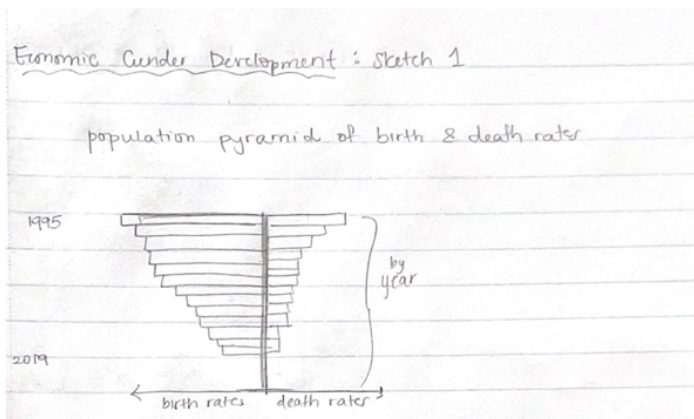 Economic (under Development : Sketch 1
population pyramid of birth & death rates
1995
by
year
2019
birth rates death rates